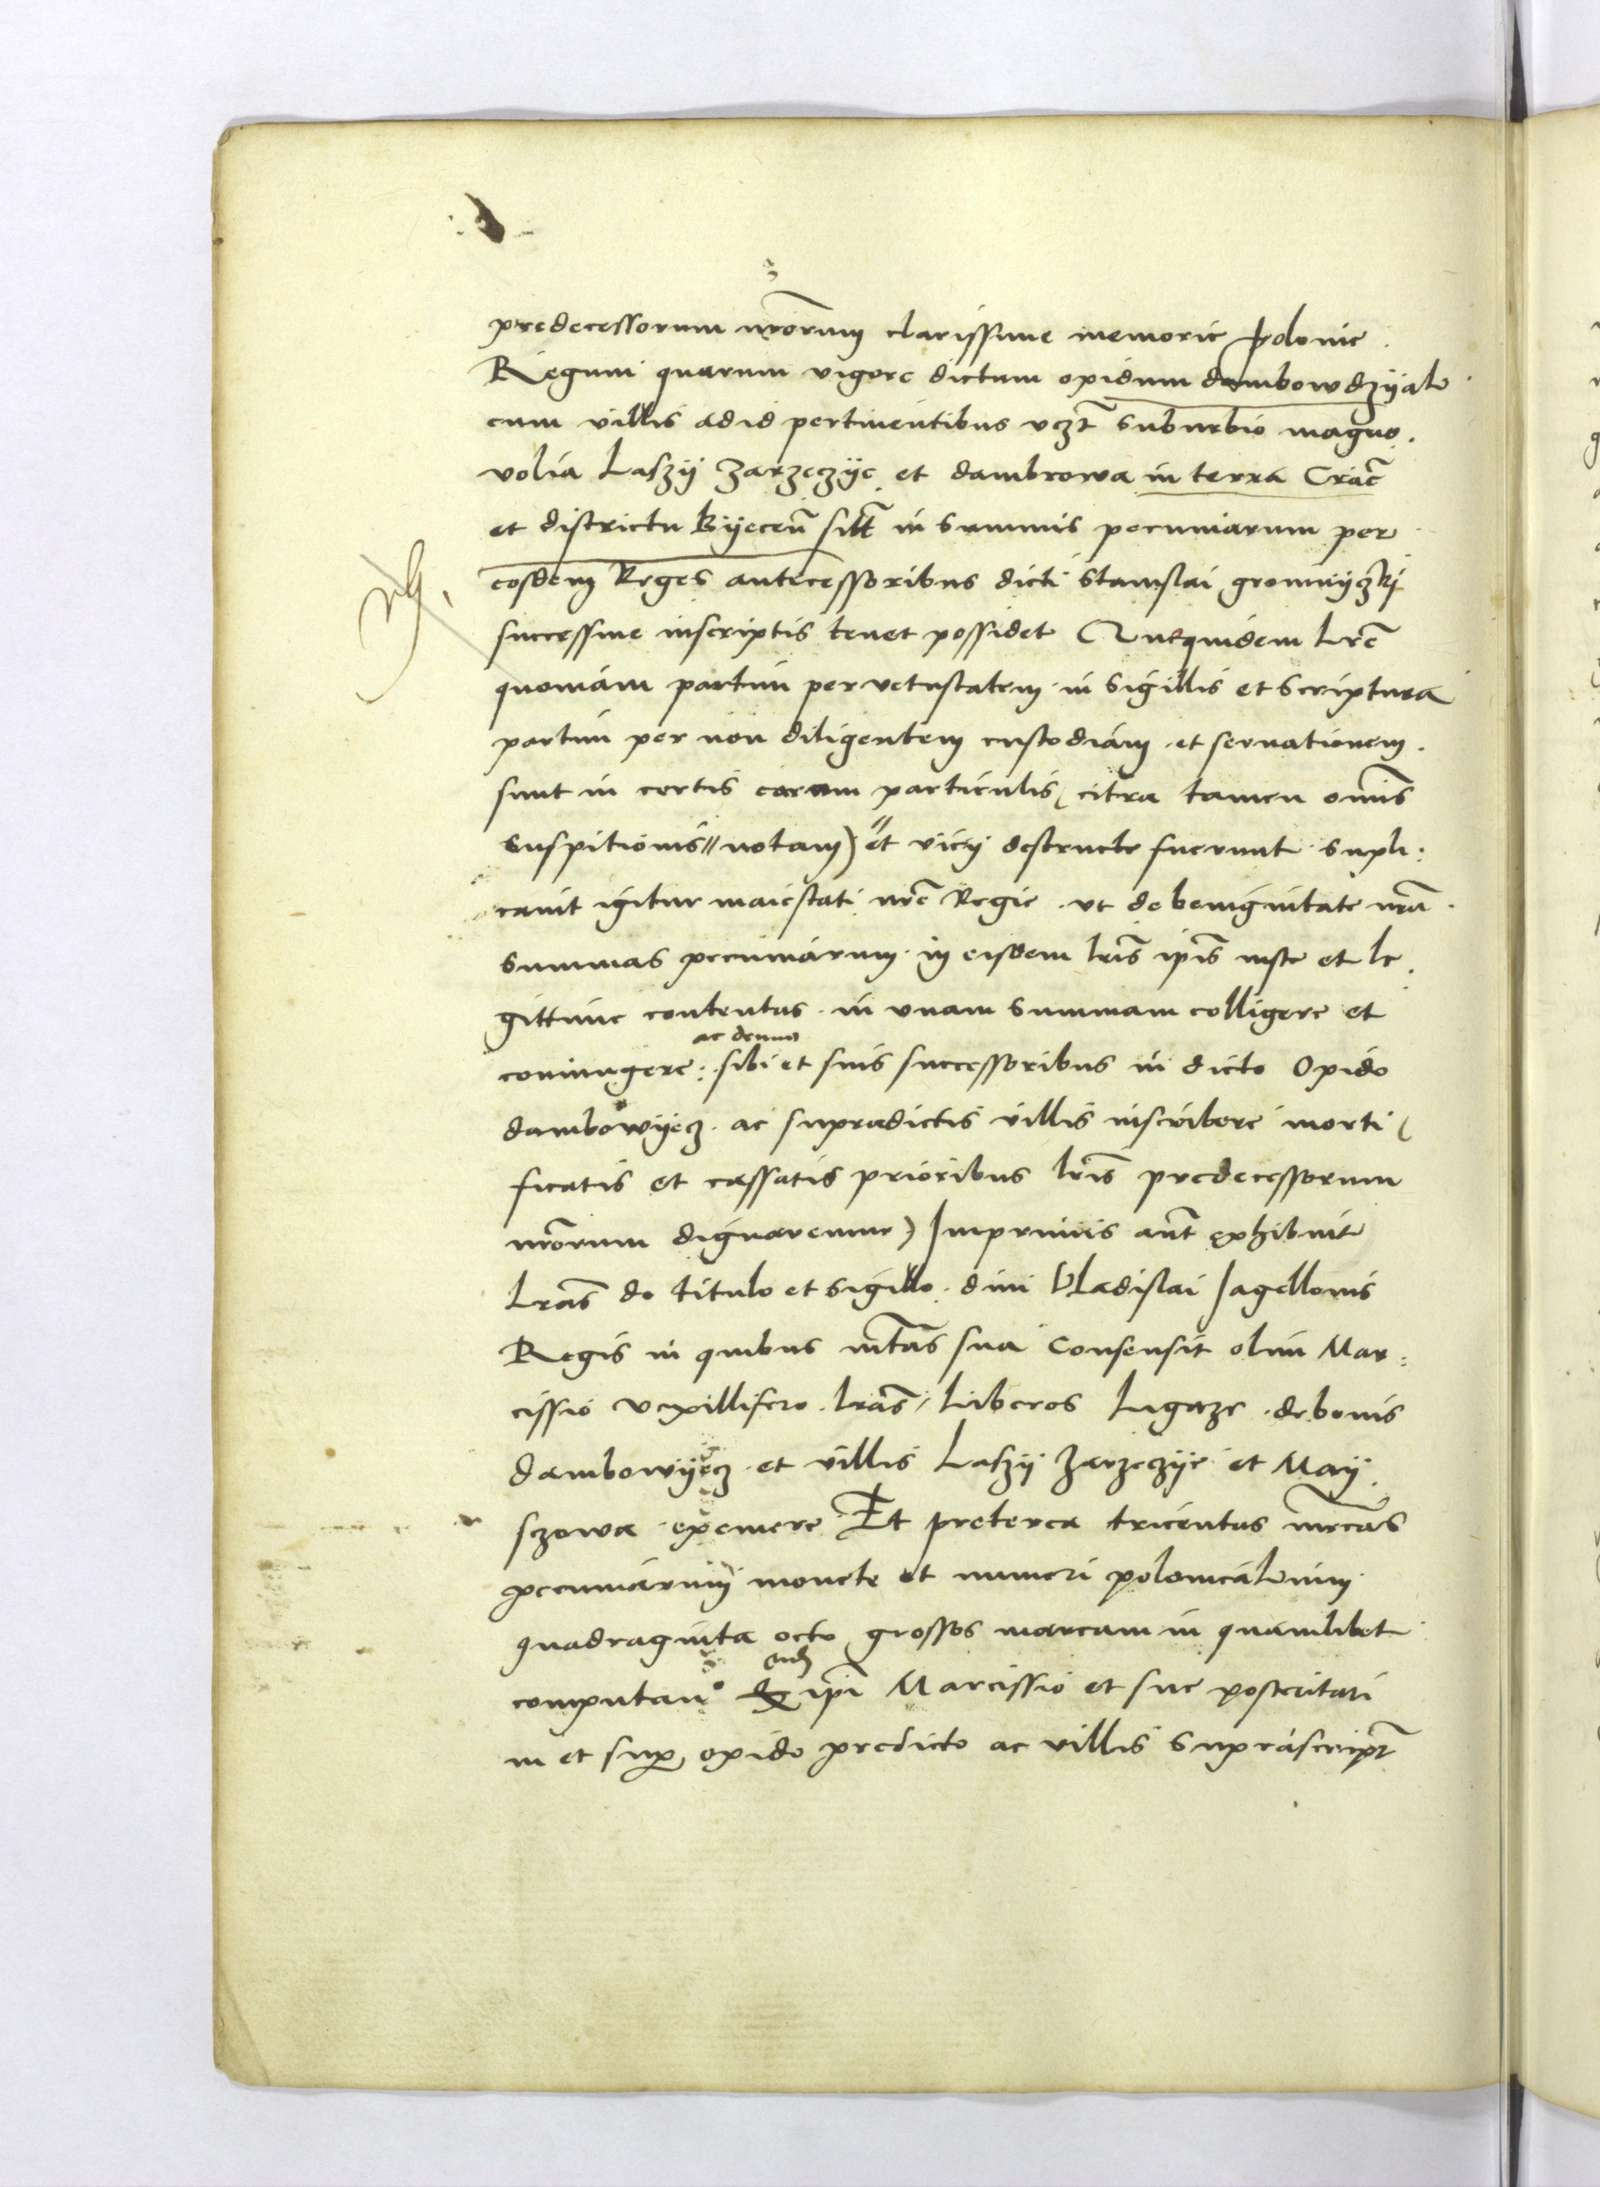 predecessorum nrõrum clarissime memorie polonie
Regum quarum vigore dictum opidum dambowdzyale
cum villis ad id pertinentibus vczt̃ suburbio magno
volia Laszy Zarzeczye et dambrowa in terra Crac̃
et districtu Byeceñ sitt̃ in summis pecuniarum per
eosdem Reges antecessoribus dicti Stanislai gromnyczkj
successive inscriptis tenet possidet Quequidem Lrẽ
quoniam partim per vetustatem in sigillis et scriptura
partim per non diligentem custodiam et servationem
sunt in certis earum particulis (citra tamen omñis
suspitionis // notam) et vicij destructe fuerunt supli:
cavit igitur maiestati nrẽ Regie ut de benignitate nrã
summas pecuniarum in eisdem lrĩs ip̃is iuste et le
gittime contentas in unam summam colligere et
coniungere: ac demum sibi et suis successoribus in dicto Opido
dambowyecz ac supradictis villis inscribere morti
ficatis et cassatis prioribus lrĩs predecessorum
nrõrum dignaremur) Imprimis aut̃ exhibuit
Lrãs de titulo et sigillo divi Vladislai Jagellonis
Regis in quibus mt̃as sua consensit olim Mar:
cissio vexillifero lrãs / Liberos Ligeze de bonis
dambowyecz et villis Laszy Zarzeczye et May
szowa exemere Et preterea tricentas mrc̃as
pecuniarum monete et numeri polonicalium
quadraginta octo grossos marcam in quamlibet
computan° eid ip̃i Marcissio et sue posteritati
in et sup opido predicto ac villis suprascript̃